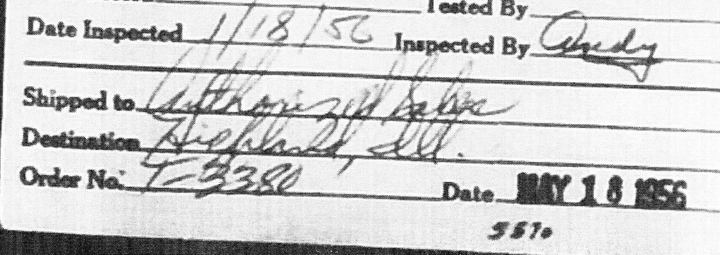 Tested By
Date Inspected 1/18/56 Inspected By Andy
Shipped to Authorized Sales
Destination Highland, Ill.
Order No. T-3380 Date MAY 18 1956
5570